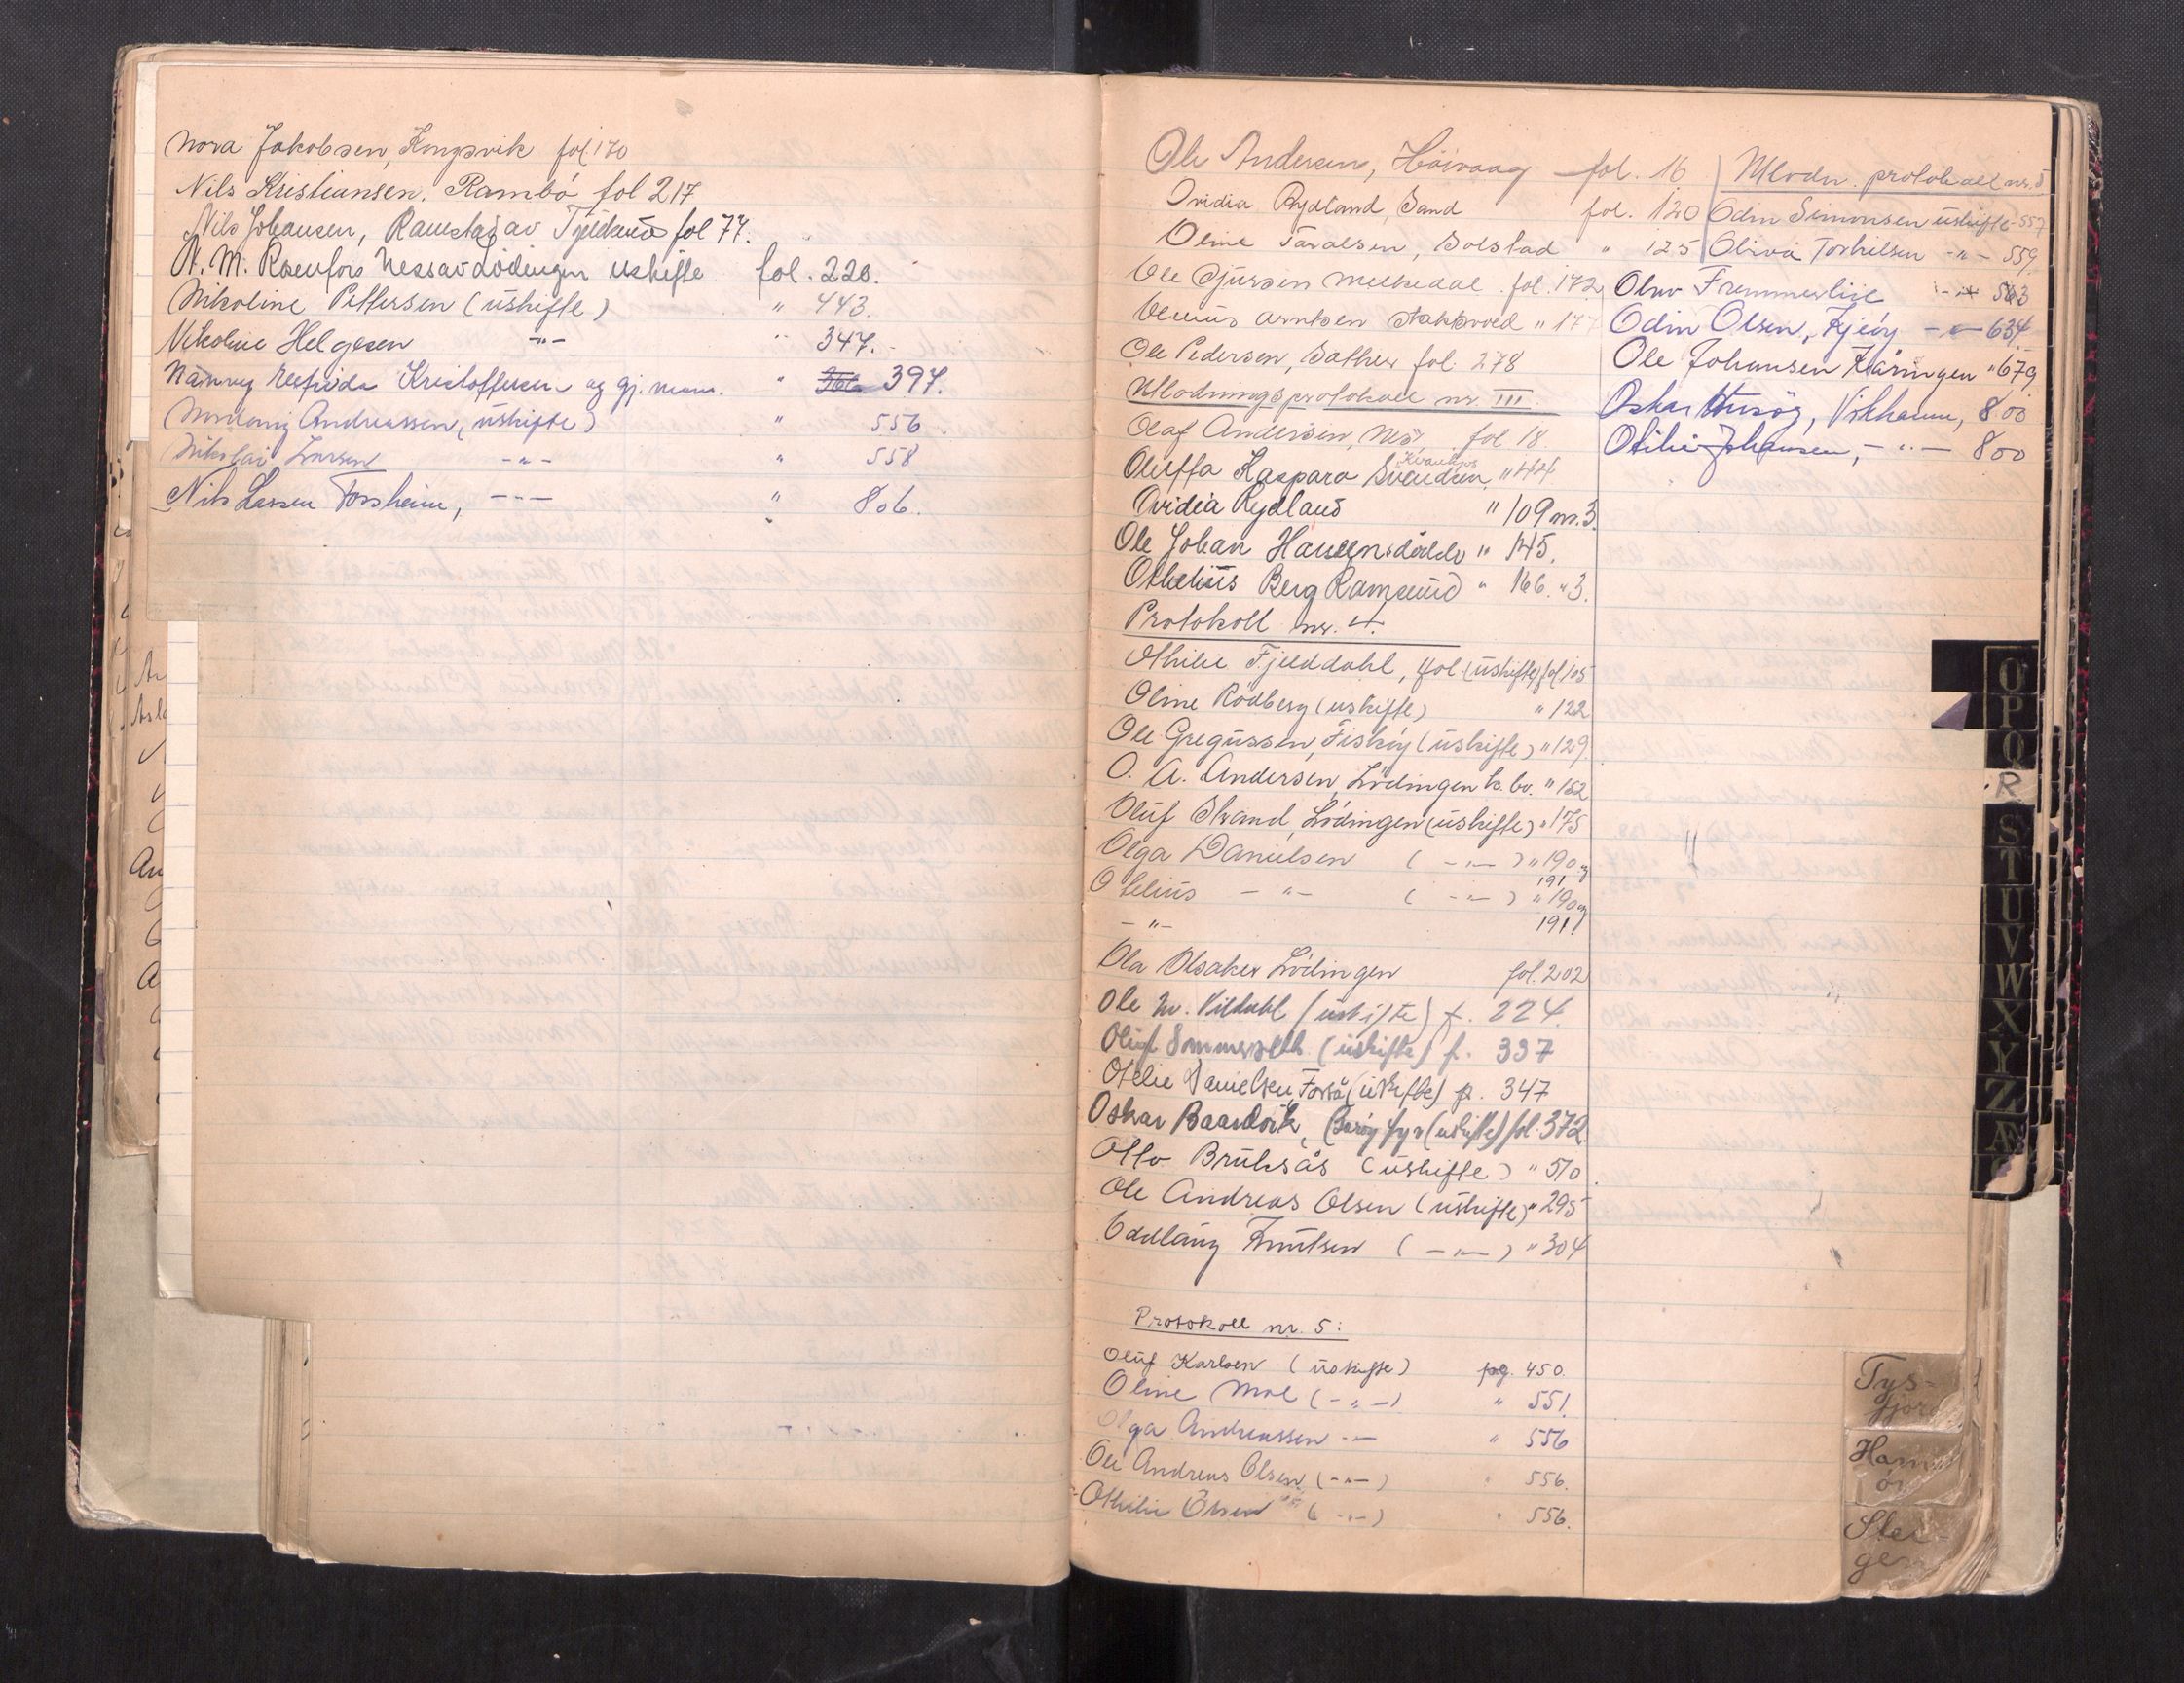 Nora Jakobsen, Kongsvik fol 170
Nils Kristiansen. Rambö fol 217
Nils Johansen, Ramstad av Tjeldsund fol 77.
N. M. Rosenfors Nessav Lödingen uskifte fol. 220.
Nikoline Pettersen (uskifte) " 443.
Nikoline Helgesen -"- " 347.
Nanny Elfrida Kristoffersen og gj. mann. " 366 397.
Nordany Andreassen, (uskifte) " 556
Nikolai Larsen -"- " 558
Nils Larsen Forsheim, -"- " 806.
Ole Andersen, Höivaag fol. 16
Ovidia Rydland, Sand fol. 120
Oline Taralsen, Bolstad " 125
Ole Sjursen Melkedal . fol. 172
Olenius Arntsen Stakkvold " 177
Ole Pedersen, Sæther fol. 278
Utlodningsprotokoll nr. III
Olaf Andersen, Nes fol 18
Oluffa Kaspara Svendsen " 44
Ovidia Rydland " 109 nr. 3.
Ole Johan Hansen " 145.
Othelius Berg Ramsund " 166. " 3.
Protokoll nr. 4.
Othilie Fjelddahl, fol (uskifte) fol 105
Oline Rödberg (uskifte) " 122
Ole Gregussen, Fisköy (uskifte) " 129
O. A. Andersen, Lödingen k. bo. " 162
Oluf Strand, Lödingen (uskifte) " 175
Olga Danielsen ( -"- ) " 190 og
191
Otelius -"- ( -"- ) " 190 og
-"- 191
Ola Olsaker Lödingen fol. 202
Ole N. Vildahl (uskifte) f. 224.
Oluf Sommerseth (uskifte) f. 337
Otelie Danielsen, Forså (uskifte) p. 347
Oskar Baardvik, Baröy fyr (uskifte) fol. 372.
Otto Bruksås (uskifte) " 510
Ole Andreas Olsen (uskifte) " 295
Oddlaug Knutsen ( -"- ) " 304
Protokoll nr. 5:
Oluf Karlsen (uskifte) pg. 450.
Oline Moe (-"-) " 551.
Olga Andreassen -"- " 556
Ole Andreas Olsen (-"-) " 556.
Othilie Olsen (-"-) " 556.
Utlodn. protokoll nr. 5
Odin Simonsen uskifte - 557
Oliva Torkelsen -"- 559
Olav Fremmerlie -"- 563
Odin Olsen, Kjeöy -"- 634.
Ole Johansen Kåringen " 679
Oskar Husöy, Vikhamn, 800
Otilie Johansen, -"- 800
O
P
Q
R
S
T
U
V
W
X
Y
Z
Æ
Tys-
fjord
Hamar
öy
Stei-
gen